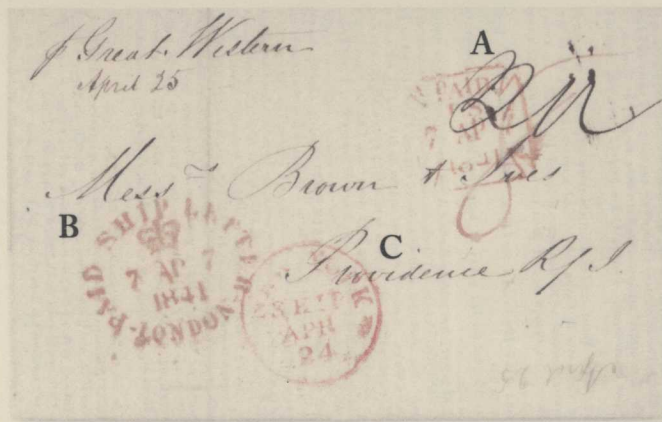 p Great Western
April 25
A
PAID
7 AP 7
1841
Mess rs Brown & Ives
B
PAID SHIP LETTER LONDON
7 AP 7
1841
C
Providence R/I.
NEW YORK
SHIP
APR
24
April 25